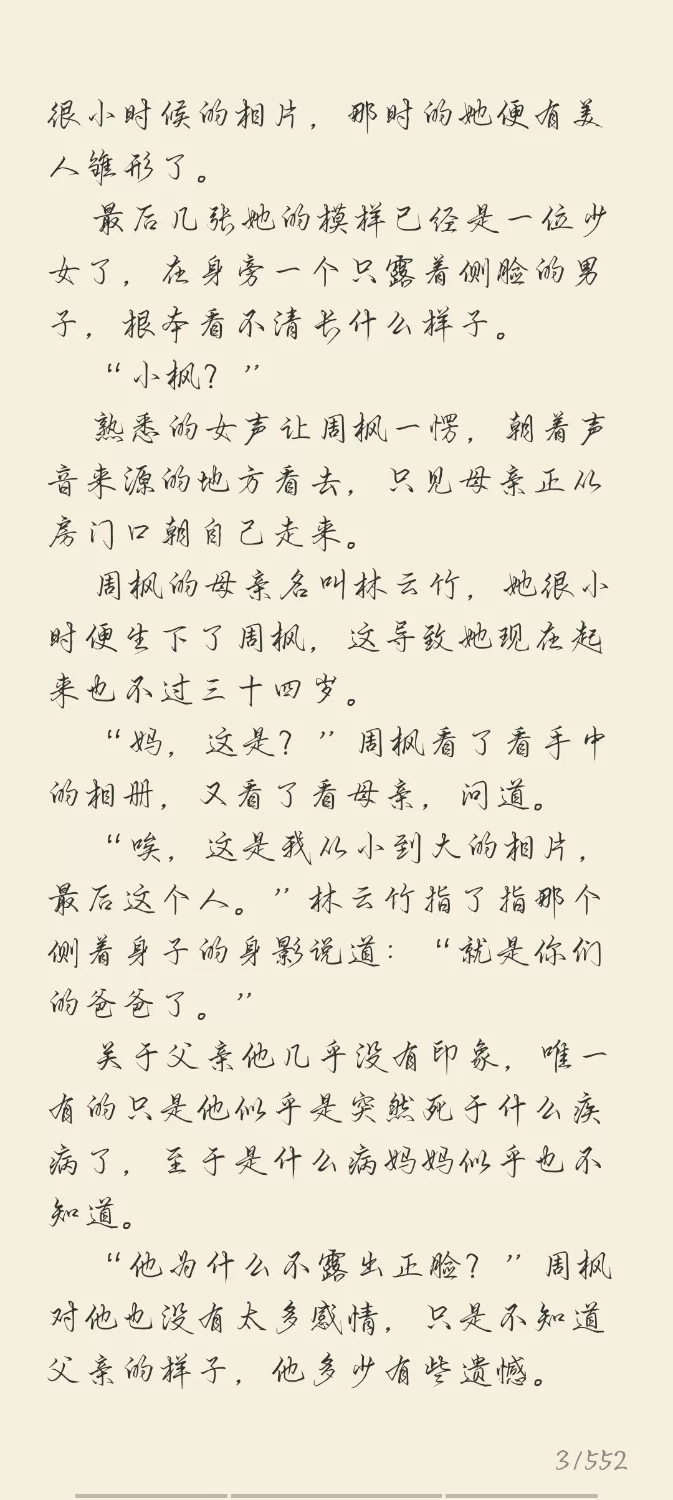 很小时候的相片，那时的她便有美
人雏形了。
最后几张她的模样已经是一位少
女了，在身旁一个只露着侧脸的男
子，根本看不清长什么样子。
“小枫？”
熟悉的女声让周枫一愣，朝着声
音来源的地方看去，只见母亲正从
房门口朝自己走来。
周枫的母亲名叫林云竹，她很小
时便生下了周枫，这导致她现在起
来也不过三十四岁。
“妈，这是？”周枫看了看手中
的相册，又看了看母亲，问道。
“唉，这是我从小到大的相片，
最后这个人。”林云竹指了指那个
侧着身子的身影说道：“就是你们
的爸爸了。”
关于父亲他几乎没有印象，唯一
有的只是他似乎是突然死于什么疾
病了，至于是什么病妈妈似乎也不
知道。
“他为什么不露出正脸？”周枫
对他也没有太多感情，只是不知道
父亲的样子，他多少有些遗憾。
3/552